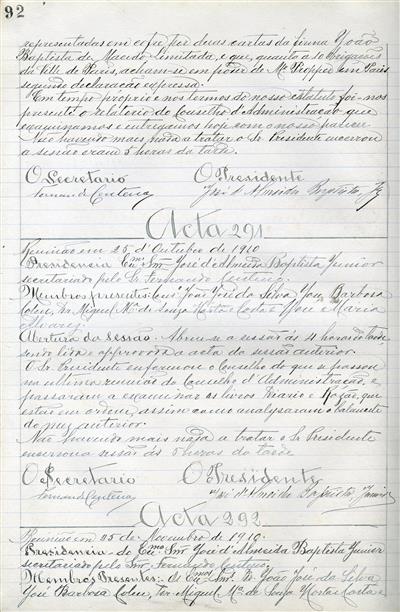 92
representadas em cofre por duas cartas da firma João
Baptista de Macedo Limitada, e que, quanto a 10 obrigações
da Ville de Paris, acham-se em poder de Mr. em Paris
segundo declaração expressa.
Em tempo proprio e nos termos do nosso estatuto foi-nos
presente o relatorio do Conselho d'Administração que
examinamos e entregamos hoje com o nosso parecer.
Não havendo mais nada a tratar o Sr. Presidente encerrou
a sessão eram 5 horas da tarde.
O Secretario O Presidente
José d'Almeida Baptista Jr
Acta 291
Reunião em 25 d'Outubro de 1910
Presidencia Exmo. Snr. José d'Almeida Baptista Junior
secretariado pelo Sr. Fernando Centeno
Membros presentes: João José da Silva, José Barbosa
Colen, Dr. Miguel Ma. de Souza Horta e Costa e José Maria
Alvarez.
Abertura da Sessão: Abriu-se a sessão ás 4 horas da tarde
sendo lida e approvada a acta da sessão anterior.
O Sr. Presidente enformou o Conselho do que se passou
na ultima reunião do Conselho d'Administração, e
passaram a examinar os livros Diario e Razão, que
estão em ordem, assim como analysaram o balancete
do mez anterior.
Não havendo mais nada a tratar o Sr. Presidente
encerrou a sessão ás 5 horas da tarde
O Secretario O Presidente
José d'Almeida Baptista Junior
Acta 292
Reunião em 25 de Novembro de 1910.
Presidencia do Exmo Snr José d'Almeida Baptista Junior
secretariado pelo Snr. Fernando Centeno.
Membros Presentes: Os Exmos. Snrs. João José da Silva
José Barbosa Colen, Dr. Miguel Ma. de Souza Horta e Costa e